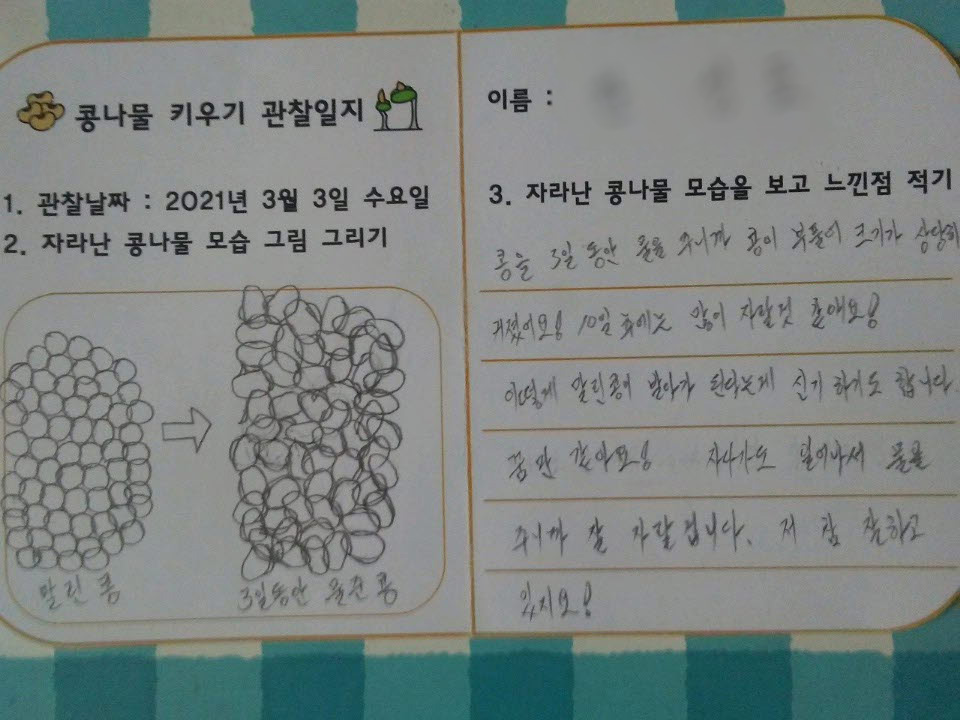 콩나물 키우기 관찰일지
1. 관찰날짜 : 2021년 3월 3일 수요일
2. 자라난 콩나물 모습 그림 그리기
말린 콩
3일동안 물준 콩
이름 :
3. 자라난 콩나물 모습을 보고 느낀점 적기
콩을 3일 동안 물을 주니까 콩이 부풀어 크기가 상당히
커졌어요! 10일 후에는 많이 자랄것 같애요!
어떻게 말린콩이 발아가 된다는게 신기하기도 합니다
꿈만 같아요! 자다가도 일어나서 물을
주니까 잘 자랄겁니다. 저 참 잘하고
있지요!